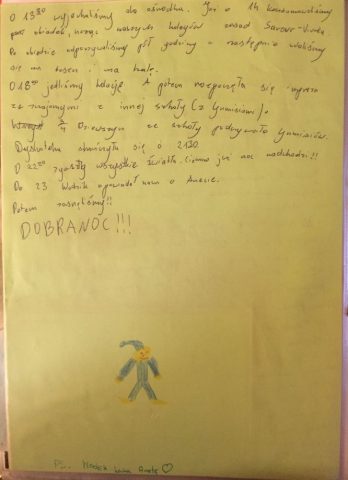 O 13³⁰ wyjechaliśmy do ośrodka. Już o 14 konsumowaliśmy
obiadek, ucząc naszych kolegów zasad Savoir-Vivre
Po obiedzie odpoczywaliśmy pół godziny a następnie
się na basen i na halę.
O 18⁰⁰ jedliśmy kolację. A potem rozpoczęła się impreza
ze znajomymi z innej szkoły (z Gumisiami).
Dziewczyn ze szkoły podrywało Gumisiów.
Dyskoteka skończyła się o 21³⁰.
O 22⁰⁰ zgasły wszystkie światła. Ciemno już noc nadchodzi!!
Do 23 opowiadał nam o
Potem zasnęliśmy!!
DOBRANOC!!!
Ps. ♡